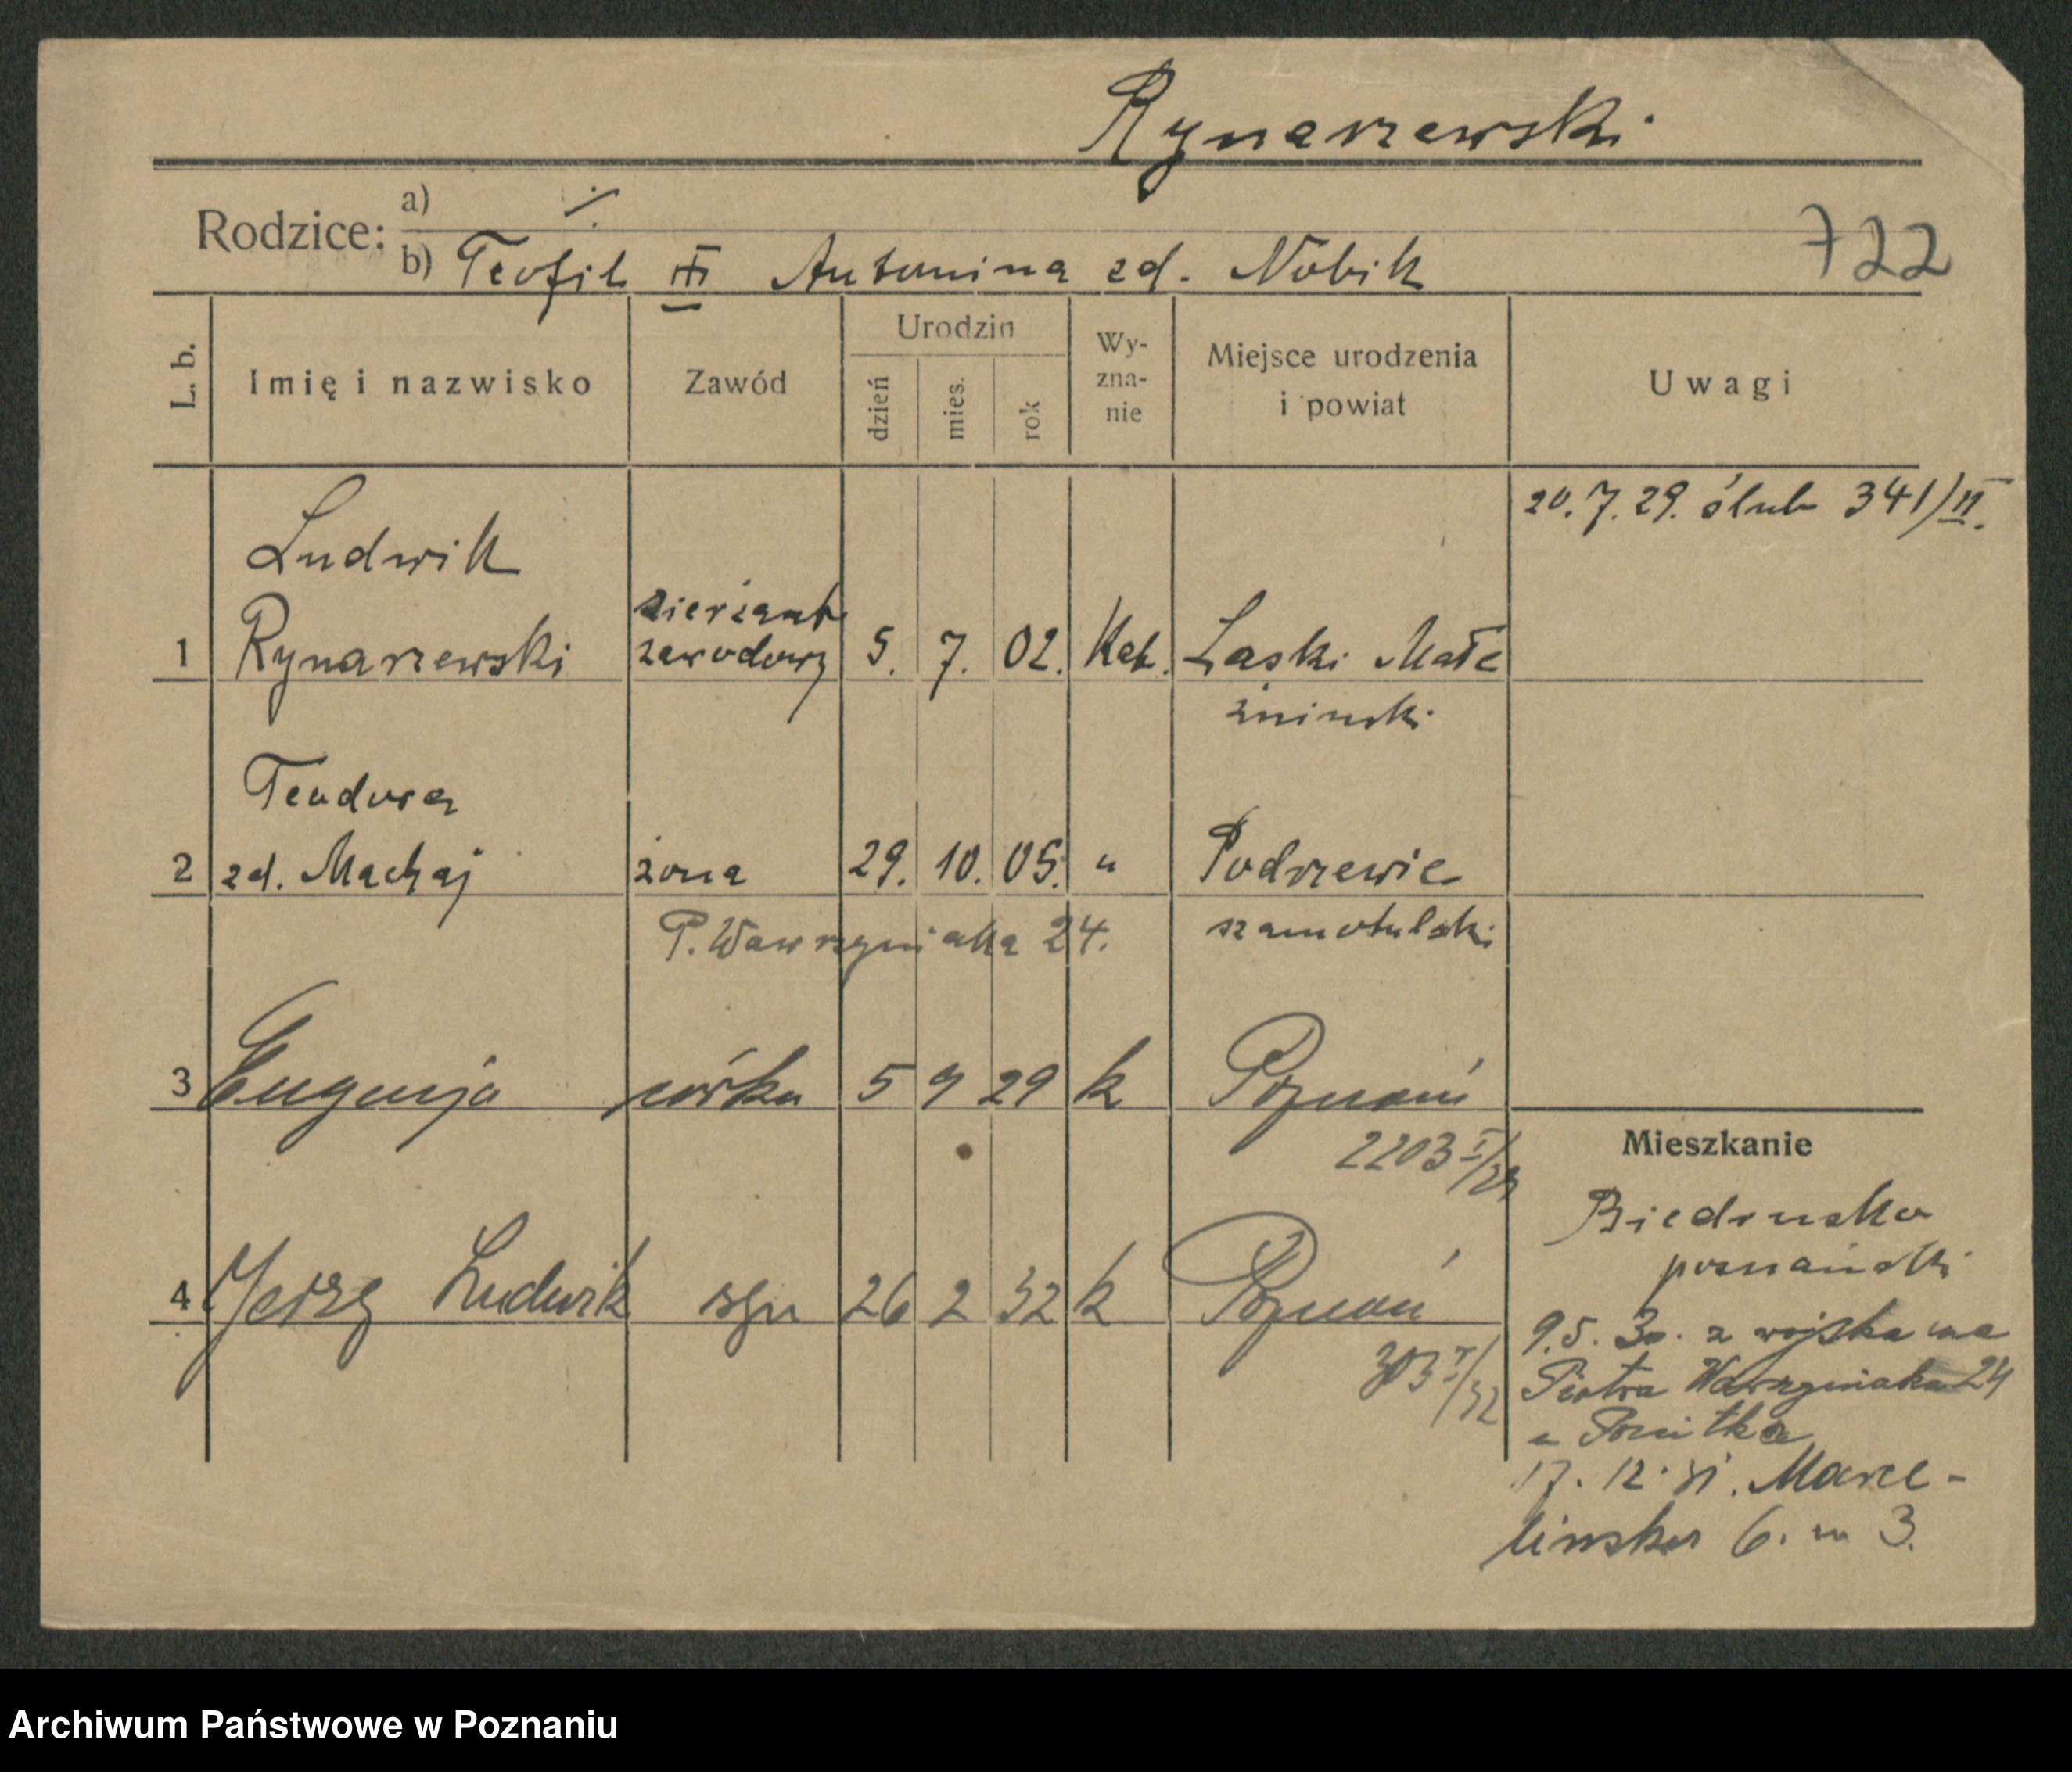 Rynarzewski
Rodzice: a) ·/.
b) Teofil III Antonina zd. Nobik
722
L. b.
Imię i nazwisko
Zawód
Urodzin
dzień
mies.
rok
Wy-
zna-
nie
Miejsce urodzenia
i powiat
Uwagi
20. 7. 29. ślub 341/II.
Ludwik
sierżant
1 Rynarzewski zawodowy 5. 7. 02. Kat. Laski Małe
żniński
Teodora
2 zd. Machaj żona 29. 10. 05. " Podrzewie
P. Wawrzyniaka 24. szamotulski
3 Eugenja córka 5 9 29 k Poznań
2203 I/29
4 Jerzy Ludwik syn 26 2 32 k Poznań
303 I/32
Mieszkanie
Biedrusko
poznański
9.5. 30. z wojska na
Piotra Wawrzyniaka 24
17. 12. 31. Marce-
lińska 6. m 3.
Archiwum Państwowe w Poznaniu